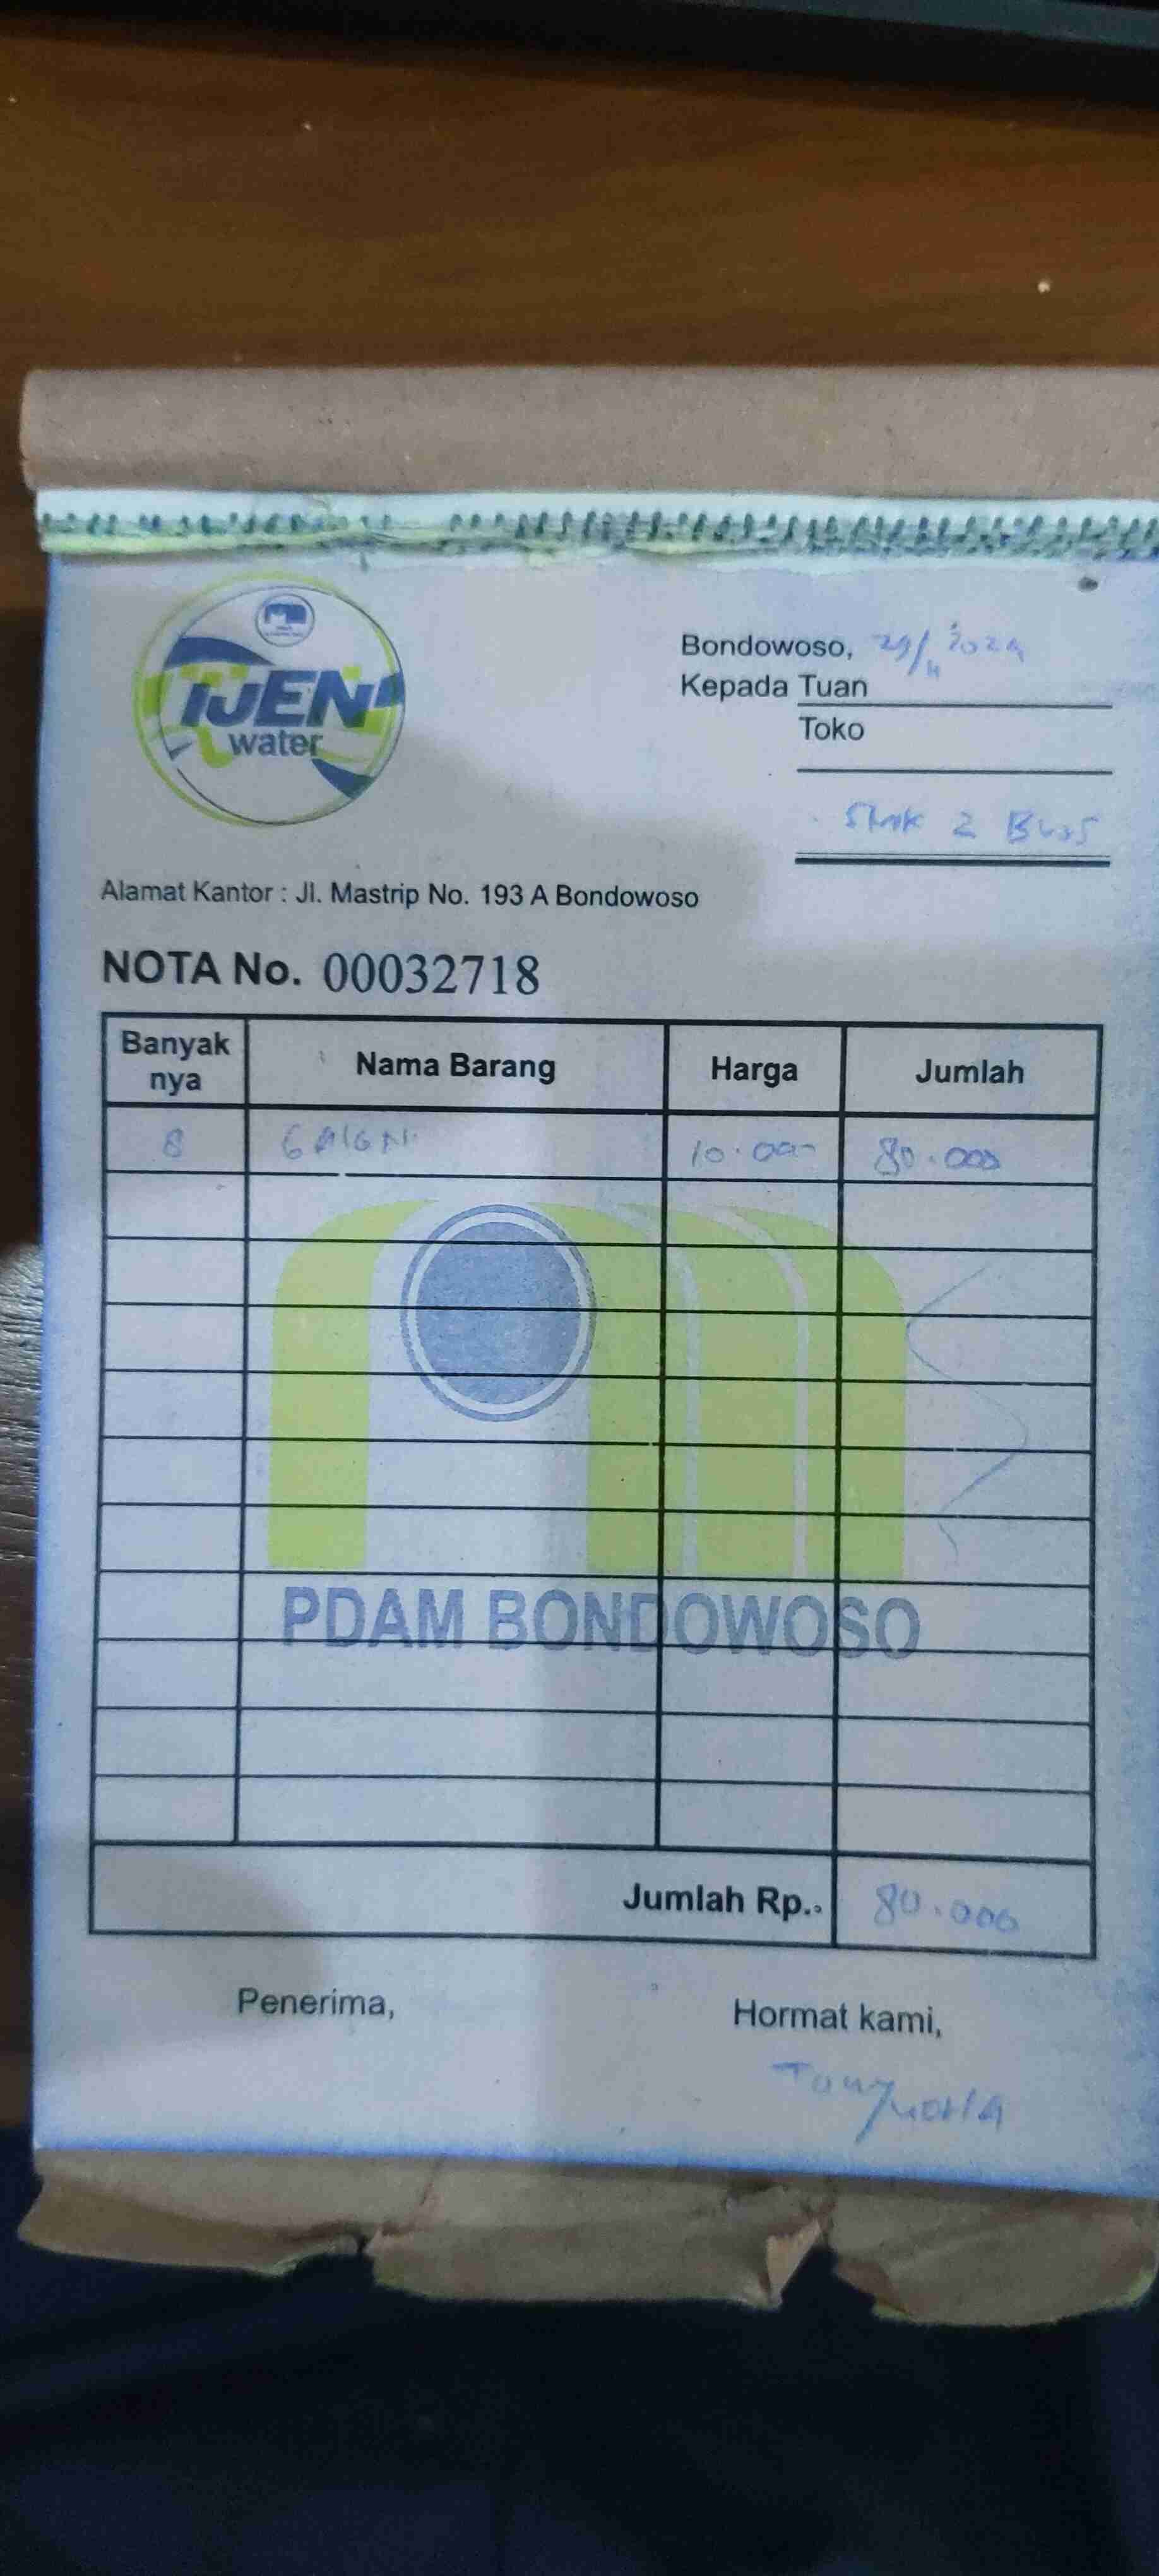 IJEN
water
Bondowoso, 29/11 2024
Kepada Tuan
Toko
SMK 2 BWS
Alamat Kantor : Jl. Mastrip No. 193 A Bondowoso
NOTA No. 00032718
Banyak nya Nama Barang Harga Jumlah
8 GALON 10.000 80.000
PDAM BONDOWOSO
Jumlah Rp.. 80.000
Penerima, Hormat kami,